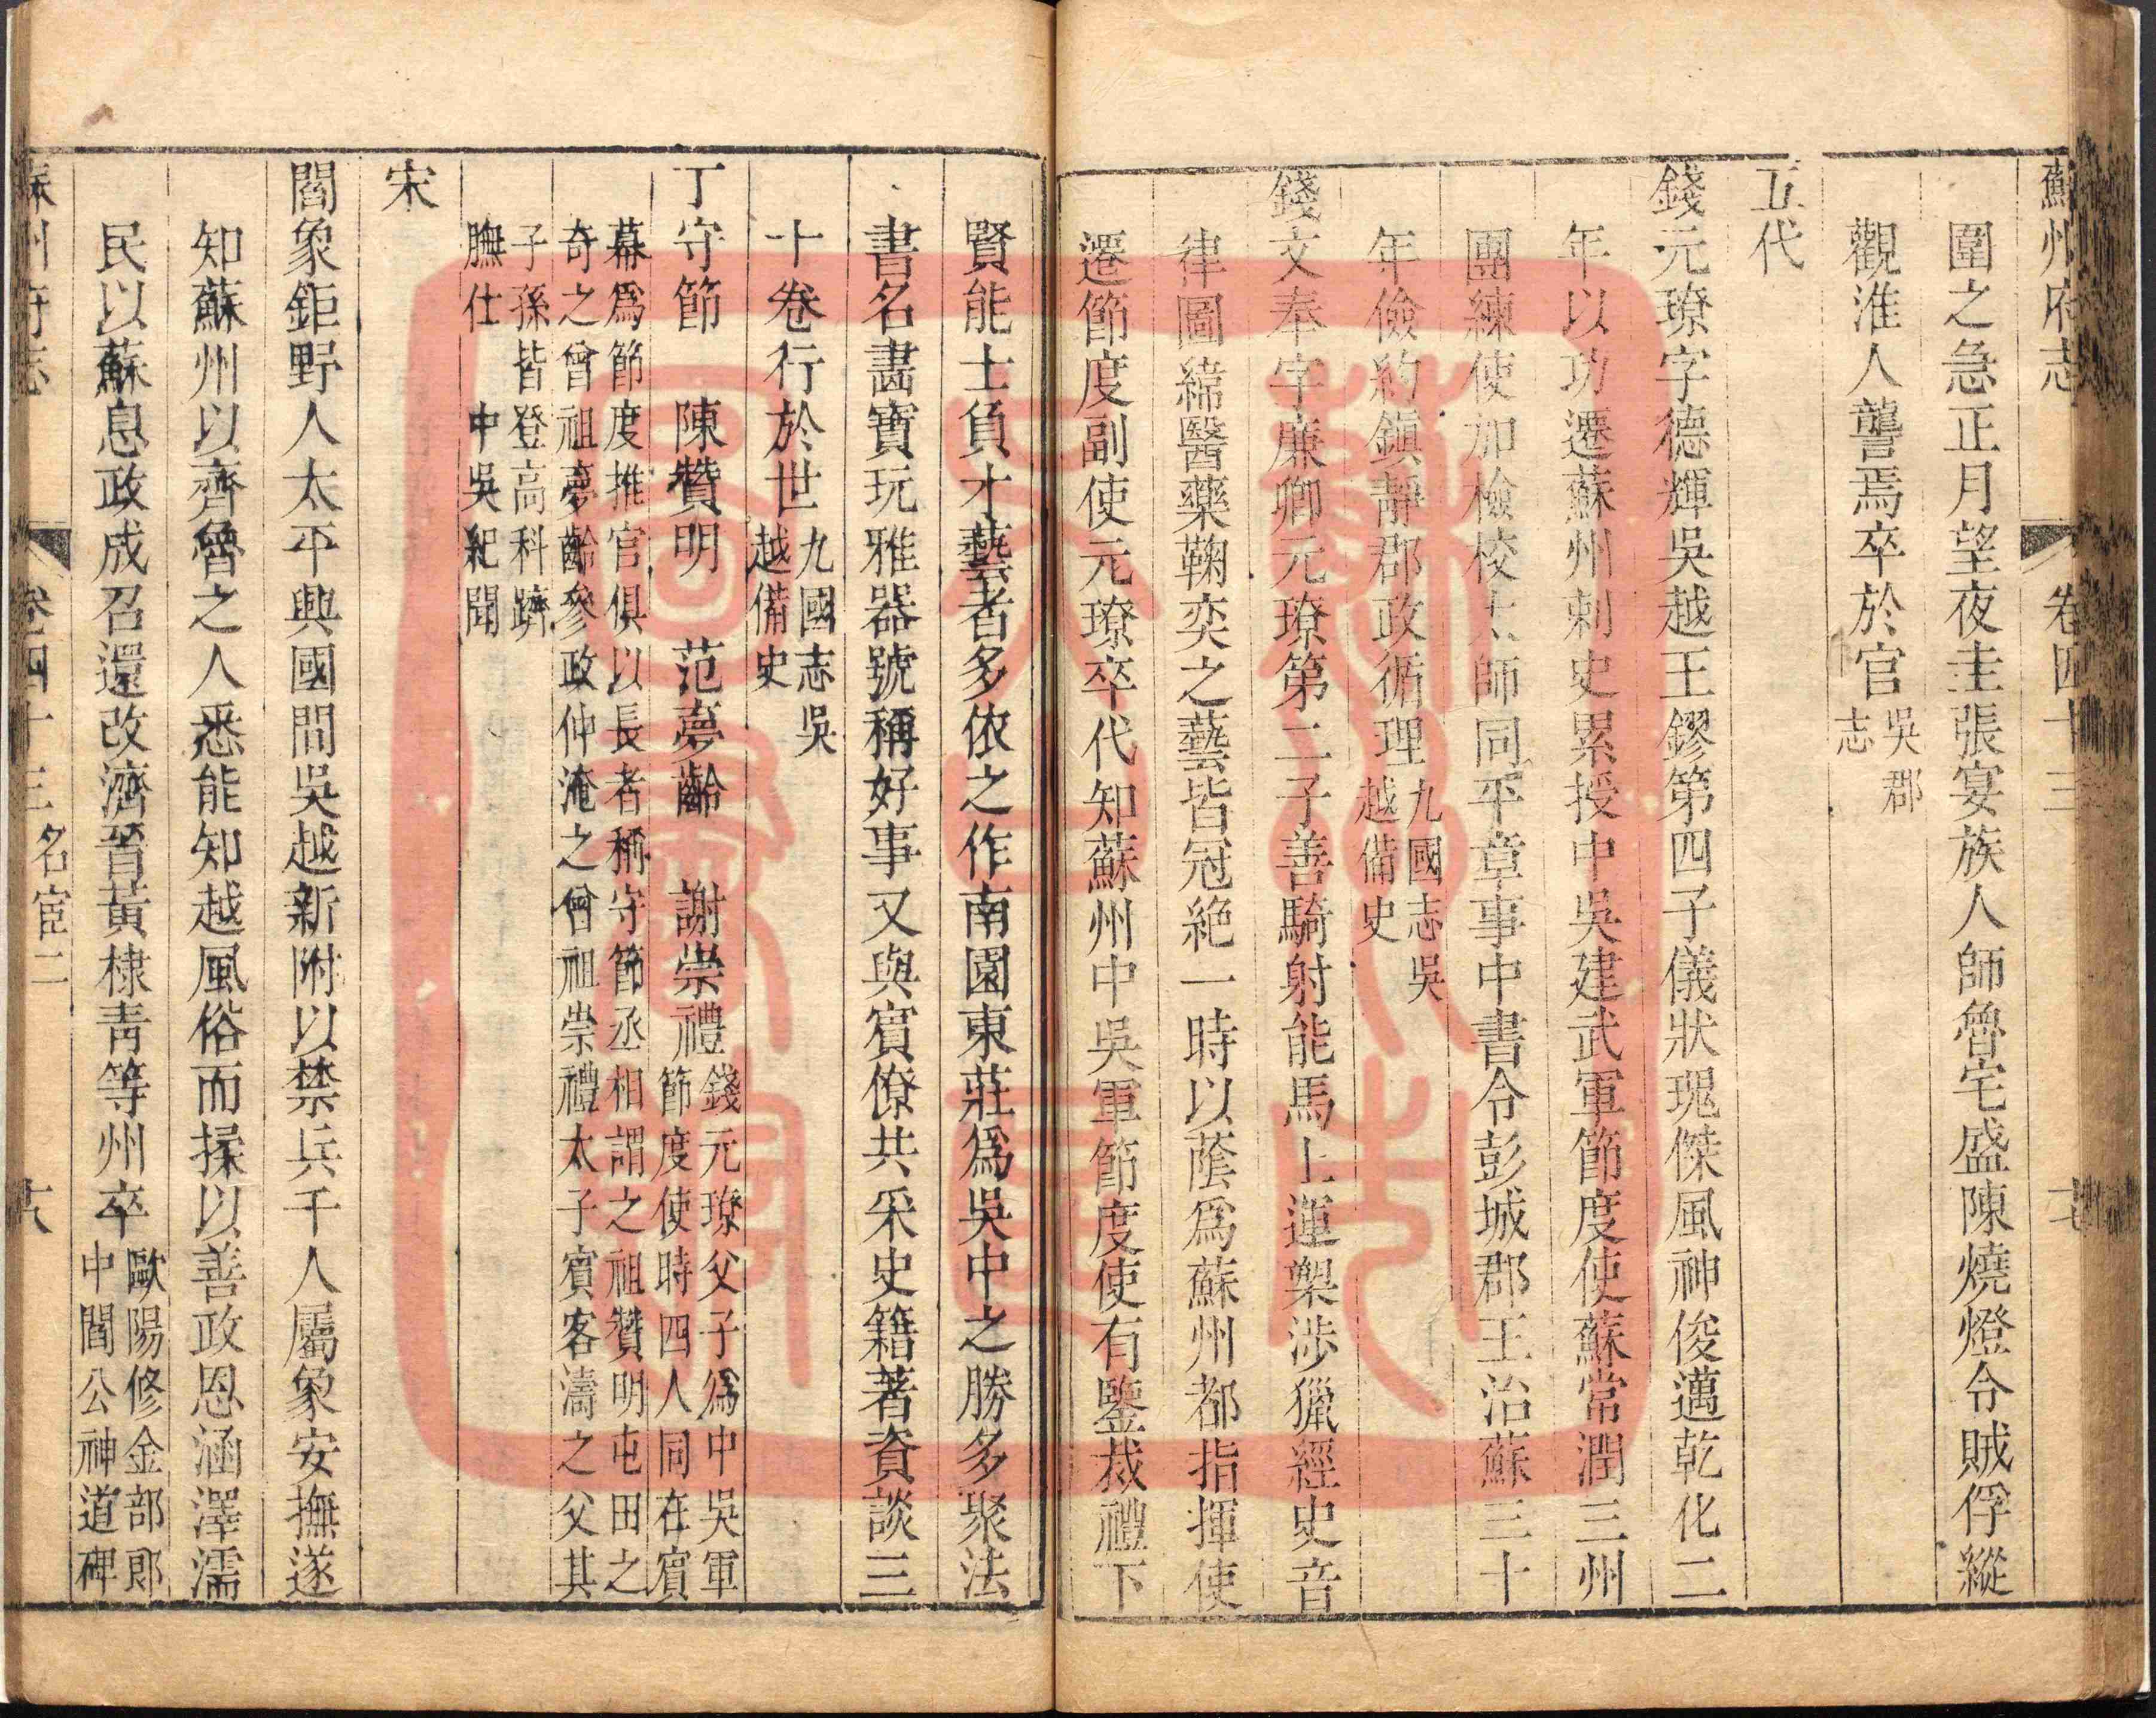 蘇州府志 卷四十三
圍之急正月望夜圭張宴族人師魯宅盛陳燒燈令賊俘縱
觀淮人讋焉卒於官吳郡
志
五代
錢元璙字德輝吳越王鏐第四子儀狀瑰傑風神俊邁乾化二
年以功遷蘇州刺史累授中吳建武軍節度使蘇常潤三州
團練使加檢校太師同平章事中書令彭城郡王治蘇三十
年儉約鎮靜郡政循理九國志吳
越備史
錢文奉字廉卿元璙第二子善騎射能馬上運槊涉獵經史音
律圖緯醫藥鞠奕之藝皆冠絕一時以蔭爲蘇州都指揮使
遷節度副使元璙卒代知蘇州中吳軍節度使有鑒裁禮下
賢能士負才藝者多依之作南園東莊爲吳中之勝多聚法
書名畫寶玩雅器號稱好事又與賓僚共采史籍著資談三
十卷行於世九國志吳
越備史
丁守節 陳贊明 范夢齡 謝崇禮錢元璙父子爲中吳軍
節度使時四人同在賓
幕爲節度推官俱以長者稱守節丞相謂之祖贊明屯田之
奇之曾祖夢齡參政仲淹之曾祖崇禮太子賓客濤之父其
子孫皆登高科躋
膴仕 中吳紀聞
宋
閻象鉅野人太平興國間吳越新附以禁兵千人屬象安撫遂
知蘇州以齊魯之人悉能知越風俗而揉以善政恩涵澤濡
民以蘇息政成召還改濟晉黃棣靑等州卒歐陽修金部郎
中閻公神道碑
蘇州府志 卷四十三 名宦二 十八